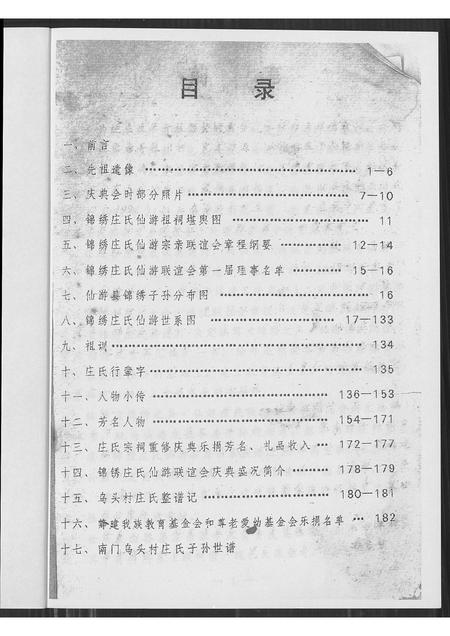 目 录
一、前言
二、先祖遗像 …………………………………… 1—6
三、庆典会时部分照片 ………………………… 7—10
四、锦绣庄氏仙游祖祠堪舆图 ………………… 11
五、锦绣庄氏仙游宗亲联谊会章程纲要 ……… 12—14
六、锦绣庄氏仙游联谊会第一届理事名单 …… 15—16
七、仙游县锦绣子孙分布图 …………………… 16
八、锦绣庄氏仙游世系图 …………………… 17—133
九、祖训 ………………………………………… 134
十、庄氏行辈字 ………………………………… 135
十一、人物小传 …………………………… 136—153
十二、芳名人物 …………………………… 154—171
十三、庄氏宗祠重修庆典乐捐芳名、礼品收入 … 172—177
十四、锦锈庄氏仙游联谊会庆典盛况简介 …… 178—179
十五、乌头村庄氏整谱记 ………………… 180—181
十六、建我族教育基金会和尊老爱幼基金会乐捐名单 … 182
十七、南门乌头村庄氏子孙世谱